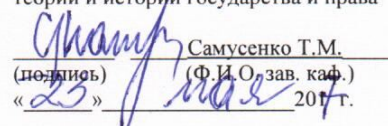 теории и истории государства и права
Самусенко Т.М.
(подпись) (Ф.И.О. зав. каф.)
«25» мая 2017 г.